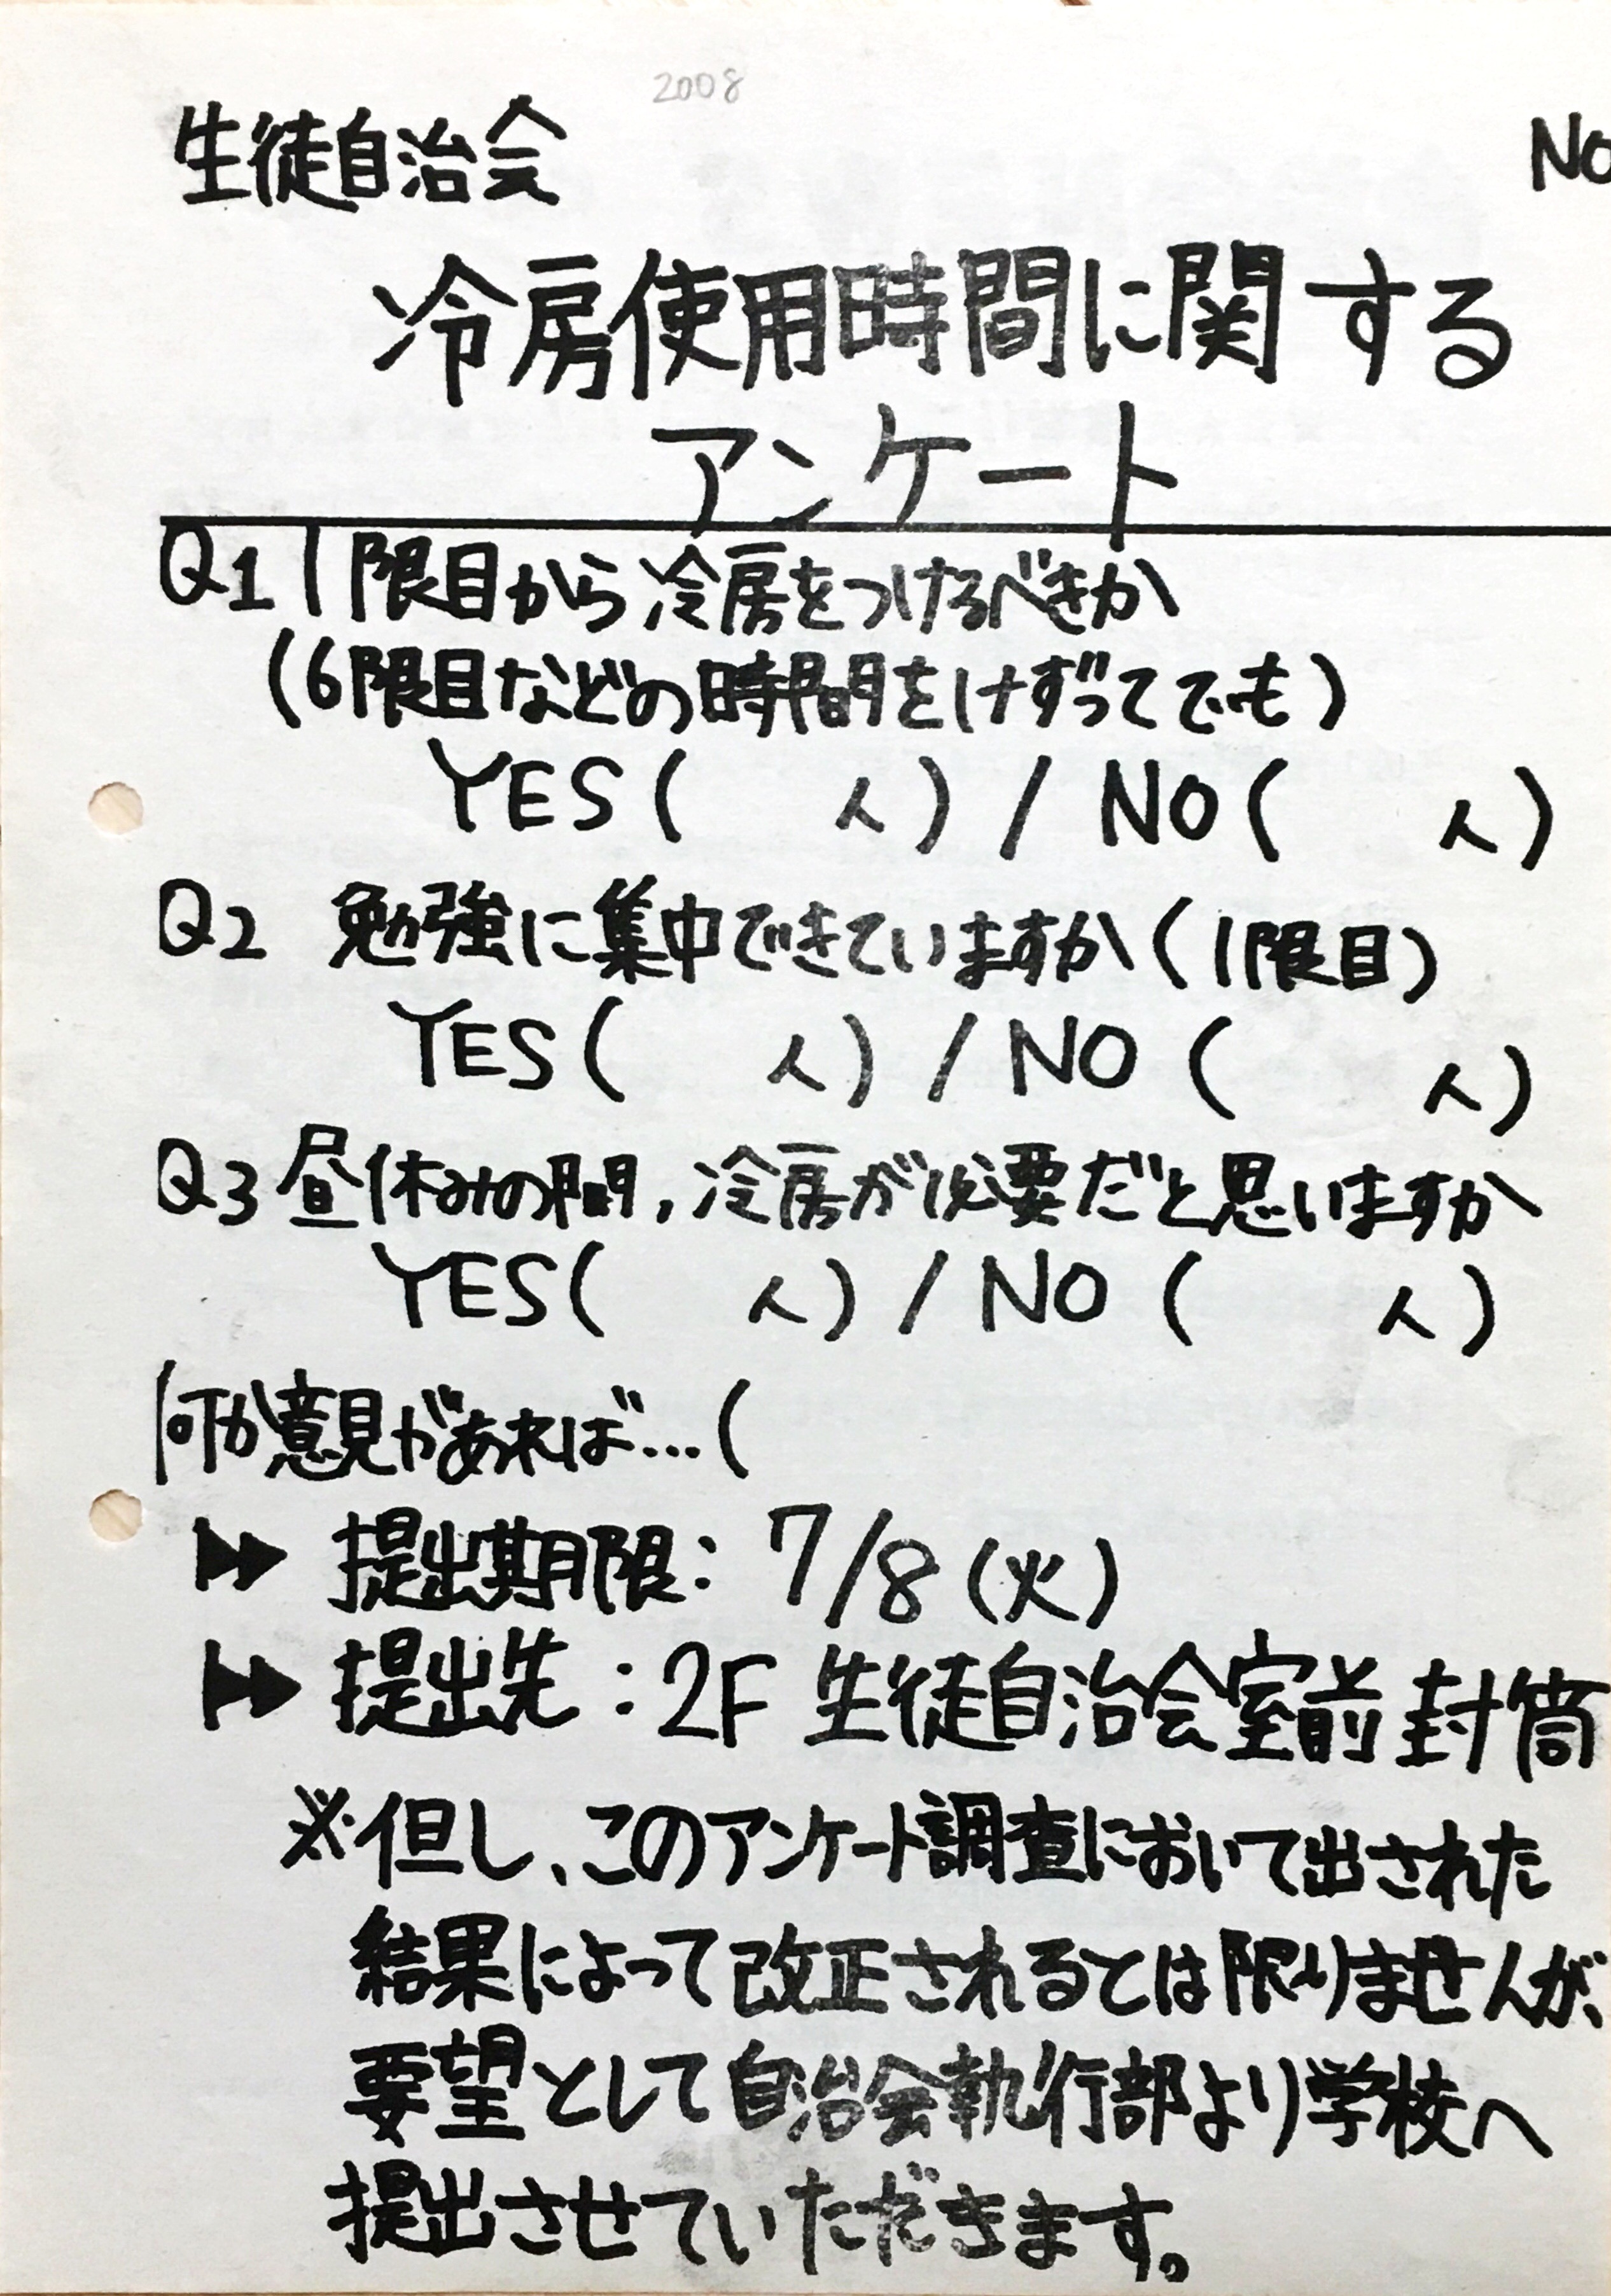 2008
生徒自治会 No
冷房使用時間に関する
アンケート
Q1 1限目から冷房をつけるべきか
(6限目などの時間をけずってでも)
YES( 人) / NO( 人)
Q2 勉強に集中できていますか(1限目)
YES( 人) / NO ( 人)
Q3 昼休みの間,冷房が必要だと思いますか
YES( 人) / NO ( 人)
何か意見があれば…(
▶▶ 提出期限: 7/8(火)
▶▶ 提出先:2F 生徒自治会室前 封筒
※但し、このアンケート調査において出された
結果によって改正されるとは限りませんが、
要望として自治会執行部より学校へ
提出させていただきます。